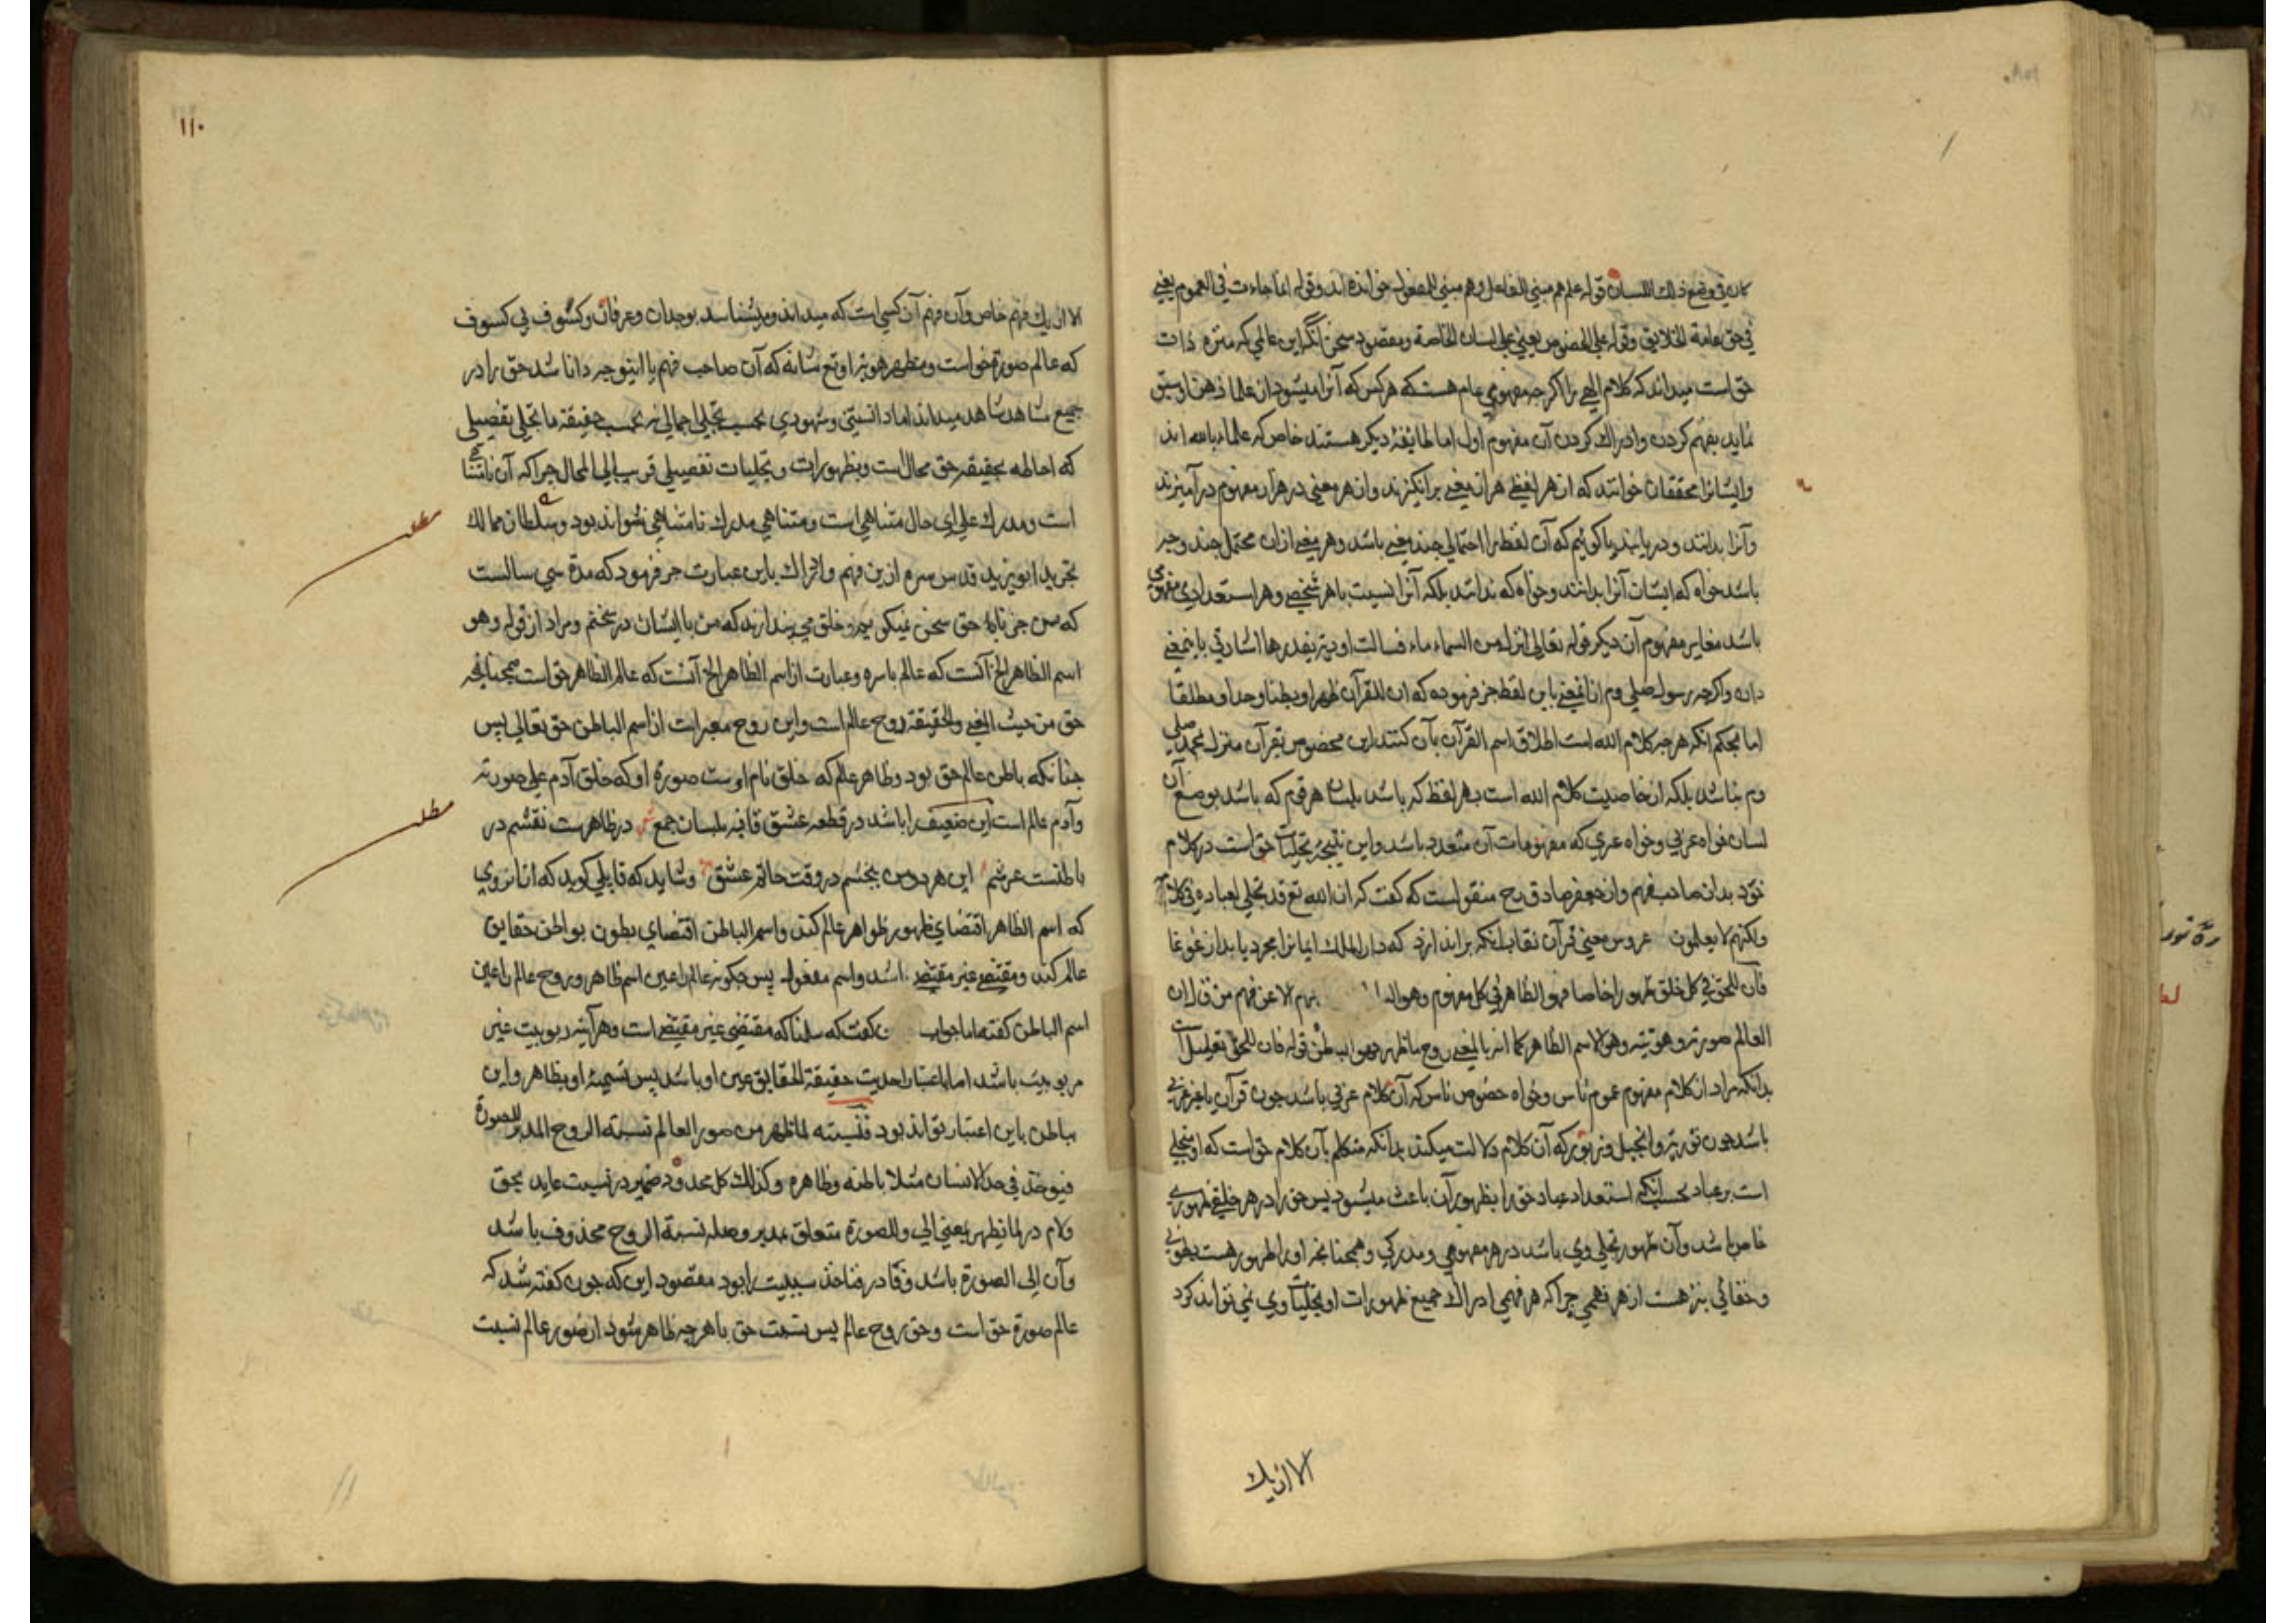 كان في وضع ذلك اللسان قوله علم هم مبني للفاعل وهم مبني للمفعول خوانده اند وقوله انما جاءت في العموم يعني
في حق عامة الخلايق وقوله علي الخصوص يعني علي لسان الخاصة ومقصود سخن آنكه اين عالمي كه منزه ذات
حق است ميداند كه كلام الهي را اكرچه مفهومي عام هست كه هركس كه آنرا ميشنود از علما ذهن او سبق
نمايد بفهم كردن وادراك كردن آن مفهوم اول اما طايفهٔ ديكر هستند خاص كه علماء بالله اند
وايشانرا محققان خوانند كه از هر لفظي هزار معني برانكيزند واز هر معني در هزار مفهوم درآميزند
وآنرا بدانند ودريابند يا كوئيم كه آن لفظ را احتمالي چند معني باشد وهر معني ازان محتمل چند وجه
باشد خواه كه ايشان آنرا بدانند وخواه كه ندانند بلكه آنرا نسبت با هر شخصي وهر استعدادي مفهومي
باشد مغاير مفهوم آن ديكر قوله تعالي انزل من السماء ماء فسالت اودية بقدرها اشارتي باين معني
دان واكرچه رسول صلي وم ازين معني باين لفظ خبر فرموده كه ان للقرآن ظهرا وبطنا وحدا ومطلقا
اما بحكم آنكه هرچه كلام الله است اطلاق اسم القرآن بآن كنند اين مخصوص بقرآن منزل بمحمد صلي
وم نباشد بلكه از خاصيت كلام الله است بهر لفظ كه باشد بلسان هر قوم كه باشد بوضع آن
لسان خواه عربي وخواه عبري كه مفهومات آن متعدد باشد واين نتيجهٔ تجليات حق است در كلام
خود بدان صاحب فهم واز جعفر صادق رح منقول است كه كفت كه ان الله تع قد تجلي لعباده في كلامه
ولكنهم لا يعلمون عروس معني قرآن نقاب آنكه براندازد كه دار الملك ايمانرا مجرد يابد از غوغا
فان للحق في كل خلق ظهورا خاصا فهو الظاهر في كل مفهوم وهو البا هم الا عن فهم من قال ان
العالم صورته وهويته وهو الاسم الظاهر كما انه بالمعني روح ما ظهر فهو الباطن قوله فان للحق تعليل است
بدانكه مراد از كلام مفهوم عموم ناس وخواه خصوص ناس كه آن كلام عربي باشد چون قرآن يا غير عربي
باشد چون تورية وانجيل وزبور كه آن كلام دلالت ميكند بدانكه متكلم بآن كلام حق است كه او متجلي
است بر عباد بحسب آنكه استعداد عباد حق را بظهور آن باعث ميشود پس حق را در هر خلقي ظهوري
خاص باشد وآن ظهور تجلي وي باشد در هر مفهومي ومدركي وهمچنانچه او را ظهور هست بطوني
وخفائي نيز هست از هر فهمي چرا كه هر فهمي ادراك جميع ظهورات او وتجليات وي نمي تواند كرد
الا از يك
١١٠
الا از يك فهم خاص وآن فهم آن كسي است كه ميداند وميشناسد بوجدان وعرفان وكشوف بي كسوف
كه عالم صورة حق است ومظهر هوية او تع شانه كه آن صاحب فهم با اينوجه دانا شد حق را در
جميع مشاهد شاهد ميداند اما دانستني وشهودي بحسب تجلي اجمالي نه بحسب حقيقة ما تجلي تفصيلي
كه احاطه بحقيقه حق محال است وبظهورات وتجليات تفصيلي قريب الي المحال چرا كه آن نامتناهي
است ومدرك علي اي حال متناهي است ومتناهي مدرك نامتناهي نتواند بود وسلطان ممالك
مطلب
تجريد ابويزيد قدس سره ازين فهم وادراك باين عبارت خبر فرمود كه مدة سي سالست
كه من جز با حق سخن نميكويم وخلق مي پندارند كه من با ايشان در سخنم ومراد از قوله وهو
اسم الظاهر الخ آنست كه عالم باسره وعبارت از اسم الظاهر الخ آنست كه عالم الظاهر حق است همچنانچه
حق من حيث المعني والحقيقة روح عالم است واين روح معبر است از اسم الباطن حق تعالي پس
چنانكه باطن عالم حق بود وظاهر عالم كه خلق نام اوست صورة او كه خلق آدم علي صورته
وآدم عالم است اين ضعيف را باشد در قطعه عشق قافيه بلسان جمع در ظاهرست نقشم در
مطلب
باطنست عرشم اين هر دو من ببخشم در وقت حالة عشق وشايد كه قايلي كويد كه از انروي
كه اسم الظاهر اقتضاي ظهور ظواهر عالم كند واسم الباطن اقتضاي بطون بواطن حقايق
عالم كند ومقتضي غير مقتضي باشد واسم مفعول پس چكونه عالم را عين اسم ظاهر وروح عالم را عين
اسم الباطن كفته اما جواب كفت كه سلمنا كه مقتضي غير مقتضي است وهرآينه ربوبيت غير
مربوبيت باشد اما باعتبار احديت حقيقة الحقايق عين او باشد پس تسميهٔ او بظاهر واين
بباطن باين اعتبار تواند بود فنسبته لما ظهر من صور العالم نسبة الروح المدبر للصورة
فيوخذ في حد الانسان مثلا باطنه وظاهره وكذلك كل محدود ضمير در نسبت عايد بحق
ولام در لما ظهر بمعني الي وللصورة متعلق بمدبر وصلهٔ نسبة الروح محذوف باشد
وآن الي الصورة باشد وفا در فياخذ سببيت را بود مقصود اين كه چون كفته شد كه
عالم صورة حق است وحق روح عالم پس نسبت حق با هرچه ظاهر شود از صور عالم نسبت